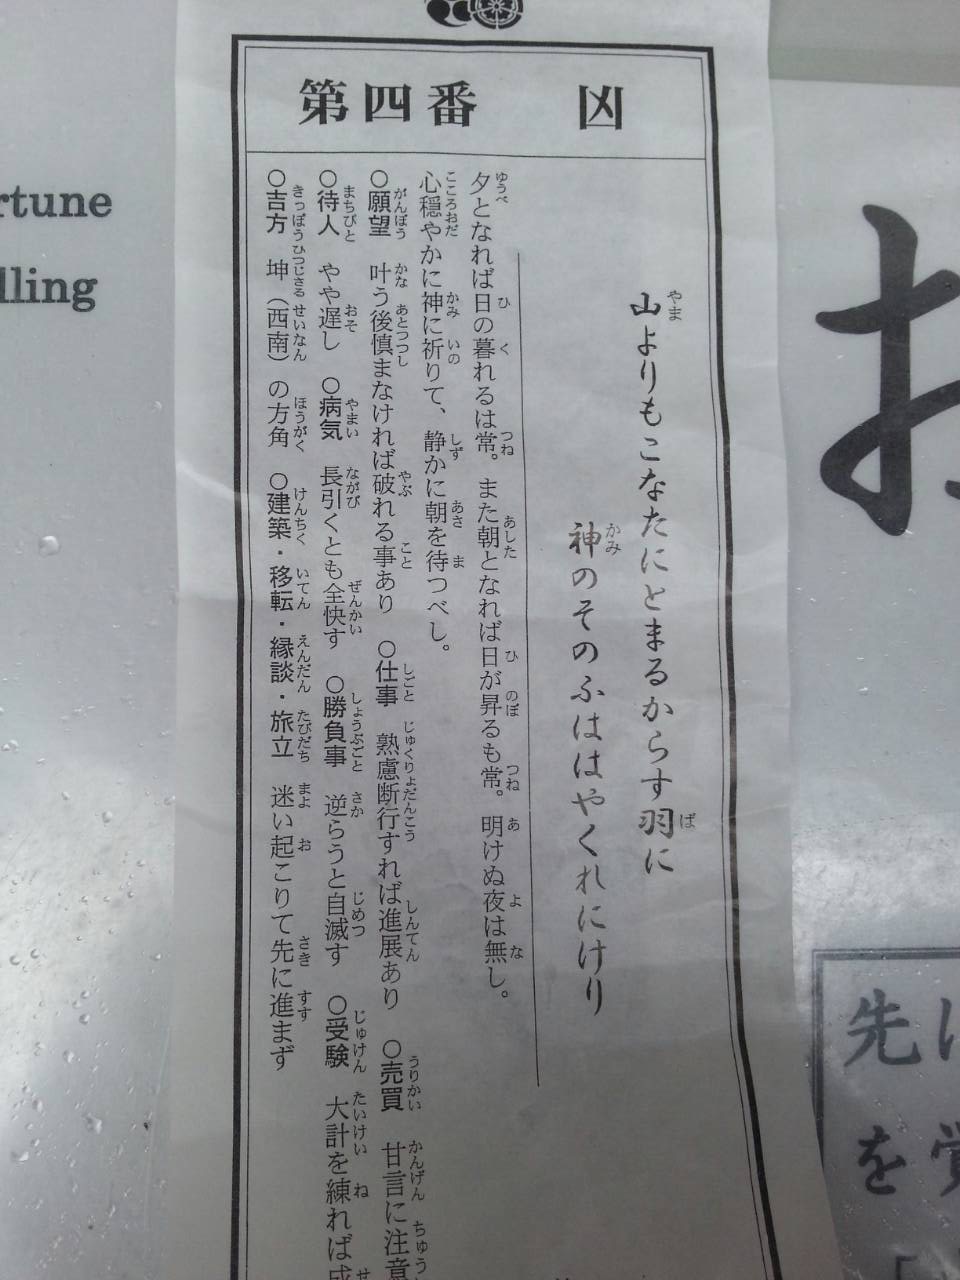 第四番　凶
山よりもこなたにとまるからす羽に
神のそのふははやくれにけり
夕となれば日の暮れるは常。また朝となれば日が昇るも常。明けぬ夜は無し。
心穏やかに神に祈りて、静かに朝を待つべし。
○願望　叶う後慎まなければ破れる事あり　○仕事　熟慮断行すれば進展あり　○売買　甘言に注意
○待人　やや遅し　○病気　長引くとも全快す　○勝負事　逆らうと自滅す　○受験　大計を練れば成
○吉方　坤（西南）の方角　○建築・移転・縁談・旅立　迷い起こりて先に進まず
rtune
lling
先に
を覚